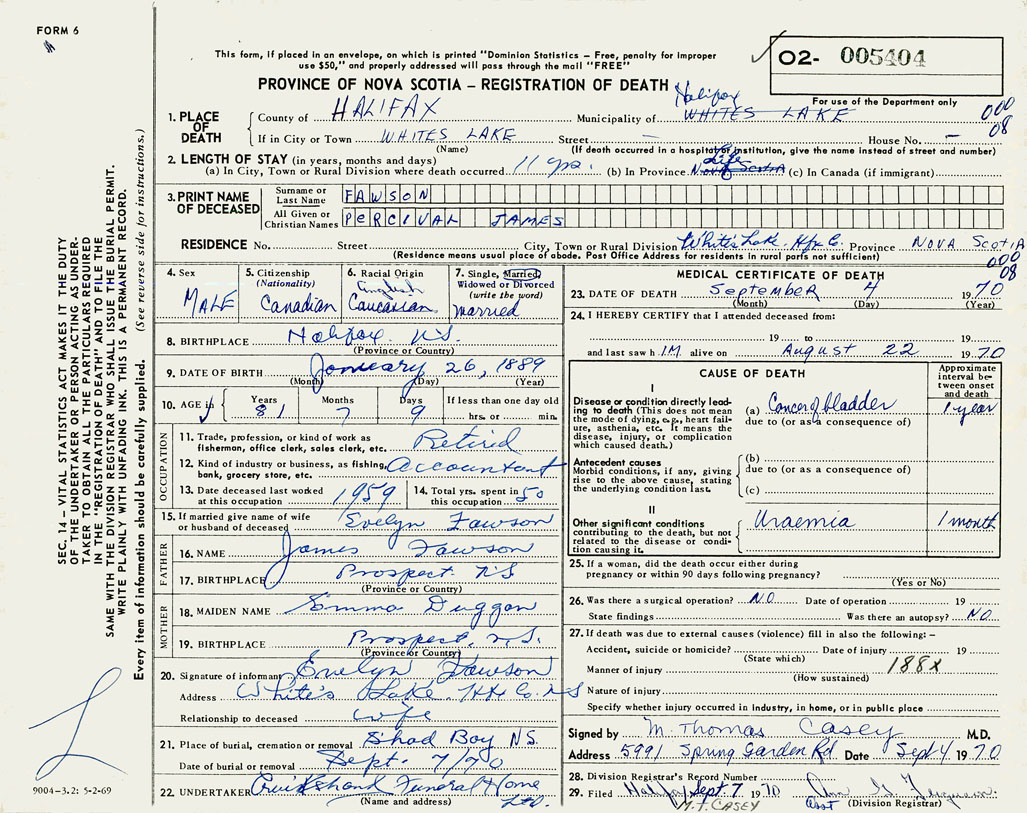 FORM 6
This form, if placed in an envelope, on which is printed "Dominion Statistics – Free, penalty for improper
use $50," and properly addressed will pass through the mail "FREE"
02- 005404
For use of the Department only
PROVINCE OF NOVA SCOTIA – REGISTRATION OF DEATH
000
08
1. PLACE OF DEATH
County of HALIFAX Municipality of WHITES LAKE Halifax
If in City or Town WHITES LAKE Street — House No. —
(Name) (If death occurred in a hospital or institution, give the name instead of street and number)
2. LENGTH OF STAY (in years, months and days)
(a) In City, Town or Rural Division where death occurred 11 yrs. (b) In Province Nova Scotia Life (c) In Canada (if immigrant)
3. PRINT NAME OF DECEASED
Surname or Last Name FAWSON
All Given or Christian Names PERCIVAL JAMES
RESIDENCE No. Street City, Town or Rural Division White's Lake. Hfx Co. Province NOVA SCOTIA
(Residence means usual place of abode. Post Office Address for residents in rural parts not sufficient)
000
08
4. Sex MALE
5. Citizenship (Nationality) Canadian
6. Racial Origin English Caucasian
7. Single, Married, Widowed or Divorced (write the word) married
8. BIRTHPLACE Halifax N.S.
(Province or Country)
9. DATE OF BIRTH January 26, 1889
(Month) (Day) (Year)
10. AGE Years 81 Months 7 Days 9 If less than one day old hrs. or min.
OCCUPATION
11. Trade, profession, or kind of work as fisherman, office clerk, sales clerk, etc. Retired
12. Kind of industry or business, as fishing, bank, grocery store, etc. Accountant
13. Date deceased last worked at this occupation 1959
14. Total yrs. spent in this occupation 50
15. If married give name of wife or husband of deceased Evelyn Fawson
FATHER
16. NAME James Fawson
17. BIRTHPLACE Prospect N.S
(Province or Country)
MOTHER
18. MAIDEN NAME Emma Duggan
19. BIRTHPLACE Prospect, N.S.
(Province or Country)
20. Signature of informant Evelyn Fawson
Address White's Lake Hfx Co. NS
Relationship to deceased wife
21. Place of burial, cremation or removal Shad Bay NS.
Date of burial or removal Sept. 7/70
22. UNDERTAKER Cruikshank Funeral Home Ltd.
(Name and address)
MEDICAL CERTIFICATE OF DEATH
23. DATE OF DEATH September 4 1970
(Month) (Day) (Year)
24. I HEREBY CERTIFY that I attended deceased from:
19 to 19
and last saw h IM alive on August 22 1970
CAUSE OF DEATH
Approximate interval between onset and death
I
Disease or condition directly leading to death (This does not mean the mode of dying, e.g., heart failure, asthenia, etc. It means the disease, injury, or complication which caused death.)
(a) Cancer of bladder 1 year
due to (or as a consequence of)
Antecedent causes
Morbid conditions, if any, giving rise to the above cause, stating the underlying condition last.
(b)
due to (or as a consequence of)
(c)
II
Other significant conditions contributing to the death, but not related to the disease or condition causing it.
Uraemia 1 month
25. If a woman, did the death occur either during pregnancy or within 90 days following pregnancy?
(Yes or No)
26. Was there a surgical operation? NO Date of operation 19
State findings Was there an autopsy? NO
27. If death was due to external causes (violence) fill in also the following:–
Accident, suicide or homicide? Date of injury 19
(State which)
Manner of injury 188X
(How sustained)
Nature of injury
Specify whether injury occurred in industry, in home, or in public place
Signed by M. Thomas Casey M.D.
Address 5991 Spring Garden Rd Date Sept 4 1970
28. Division Registrar's Record Number
29. Filed Halifax Sept 7 1970 Ann G. Ferguson
M.T. CASEY Asst (Division Registrar)
SEC. 14– VITAL STATISTICS ACT MAKES IT THE DUTY
OF THE UNDERTAKER OR PERSON ACTING AS UNDER-
TAKER TO OBTAIN ALL THE PARTICULARS REQUIRED
IN THE "REGISTRATION OF DEATH" AND TO FILE THE
SAME WITH THE DIVISION REGISTRAR WHO SHALL ISSUE THE BURIAL PERMIT.
WRITE PLAINLY WITH UNFADING INK. THIS IS A PERMANENT RECORD.
Every item of information should be carefully supplied. (See reverse side for instructions.)
9004-3.2: 5-2-69